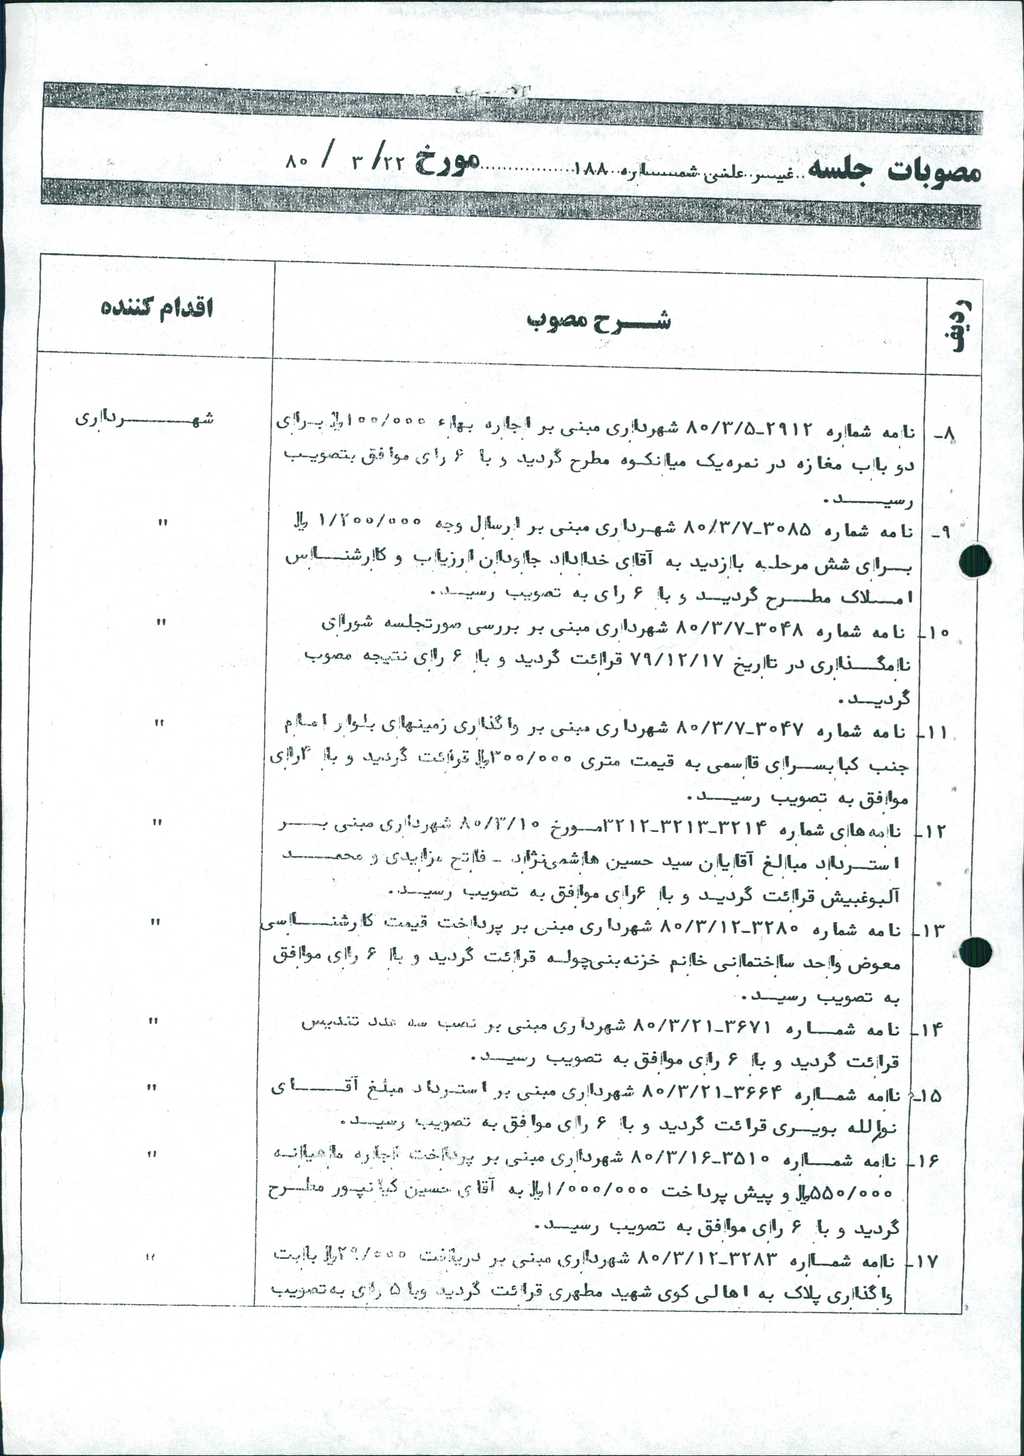 مصوبات جلسه ..غیـر..علنی شمـــاره ۱۸۸ .................مورخ ۲۲/ ۳ / ۸۰
ردیف شـــرح مصوب اقدام کننده
۸ـ نامه شماره ۲۹۱۲ـ۸۰/۳/۵ شهرداری مبنی بر اجاره بهاء ۱۰۰/۰۰۰ریال بـرای شهـــــرداری
دو باب مغازه در نمره‌یک میانکوه مطرح گردید و با ۶ رای موافق بتصویب
رسیــــد.
۹ـ نامه شماره ۳۰۸۵ـ۸۰/۳/۷ شهرداری مبنی بر ارسال وجه ۱/۲۰۰/۰۰۰ ریال "
بــرای شش مرحله بازدید به آقای خداداد جاودان ارزیاب و کارشنـــاس
امــلاک مطــرح گردیــد و با ۶ رای به تصویب رسیــد.
۱۰ـ نامه شماره ۳۰۴۸ـ۸۰/۳/۷ شهرداری مبنی بر بررسی صورتجلسه شورای "
نامگــذاری در تاریخ ۷۹/۱۲/۱۷ قرائت گردید و با ۶ رای نتیجه مصوب
گردیــد.
۱۱ـ نامه شماره ۳۰۴۷ـ۸۰/۳/۷ شهرداری مبنی بر واگذاری زمینهای بلوار امام "
جنب کبابسرای قاسمی به قیمت متری ۳۰۰/۰۰۰ریال قرائت گردید و با ۴رای
موافق به تصویب رسیــد.
۱۲ـ نامه‌های شماره ۳۲۱۴ـ۳۲۱۳ـ۳۲۱۲مورخ ۸۰/۳/۱۰ شهرداری مبنی بـــر "
استـرداد مبالغ آقایان سید حسین هاشمی‌نژاد ـ فاتح مزایدی و محمــد
آلبوغبیش قرائت گردیـد و با ۶رای موافق به تصویب رسیــد.
۱۳ـ نامه شماره ۳۲۸۰ـ۸۰/۳/۱۲ شهرداری مبنی بر پرداخت قیمت کارشنــاسی "
معوض واحد ساختمانی خانم خزنه‌بنی‌چوله قرائت گردید و با ۶ رای موافق
به تصویب رسیــد.
۱۴ـ نامه شمــاره ۳۶۷۱ـ۸۰/۳/۲۱ شهرداری مبنی بر نصب سه عدد تندیس "
قرائت گردید و با ۶ رای موافق به تصویب رسیــد.
۱۵ـ نامه شمــاره ۳۶۶۴ـ۸۰/۳/۲۱ شهرداری مبنی بر استـرداد مبلغ آقــای "
نورالله بویـری قرائت گردید و با ۶ رای موافق به تصویب رسیــد.
۱۶ـ نامه شمــاره ۳۵۱۰ـ۸۰/۳/۱۶ شهرداری مبنی بر پرداخت اجاره ماهیانـه "
۵۵۰/۰۰۰ریال و پیش پرداخت ۱/۰۰۰/۰۰۰ریال به آقای حسین کیانپـور مطـرح
گردید و با ۶ رای موافق به تصویب رسیــد.
۱۷ـ نامه شمــاره ۳۲۸۳ـ۸۰/۳/۱۲ شهرداری مبنی بر دریافت ۲۹/۰۰۰ریال بابت "
واگذاری پلاک به اهالی کوی شهید مطهری قرائت گردید وبا ۵ رای به‌تصویب